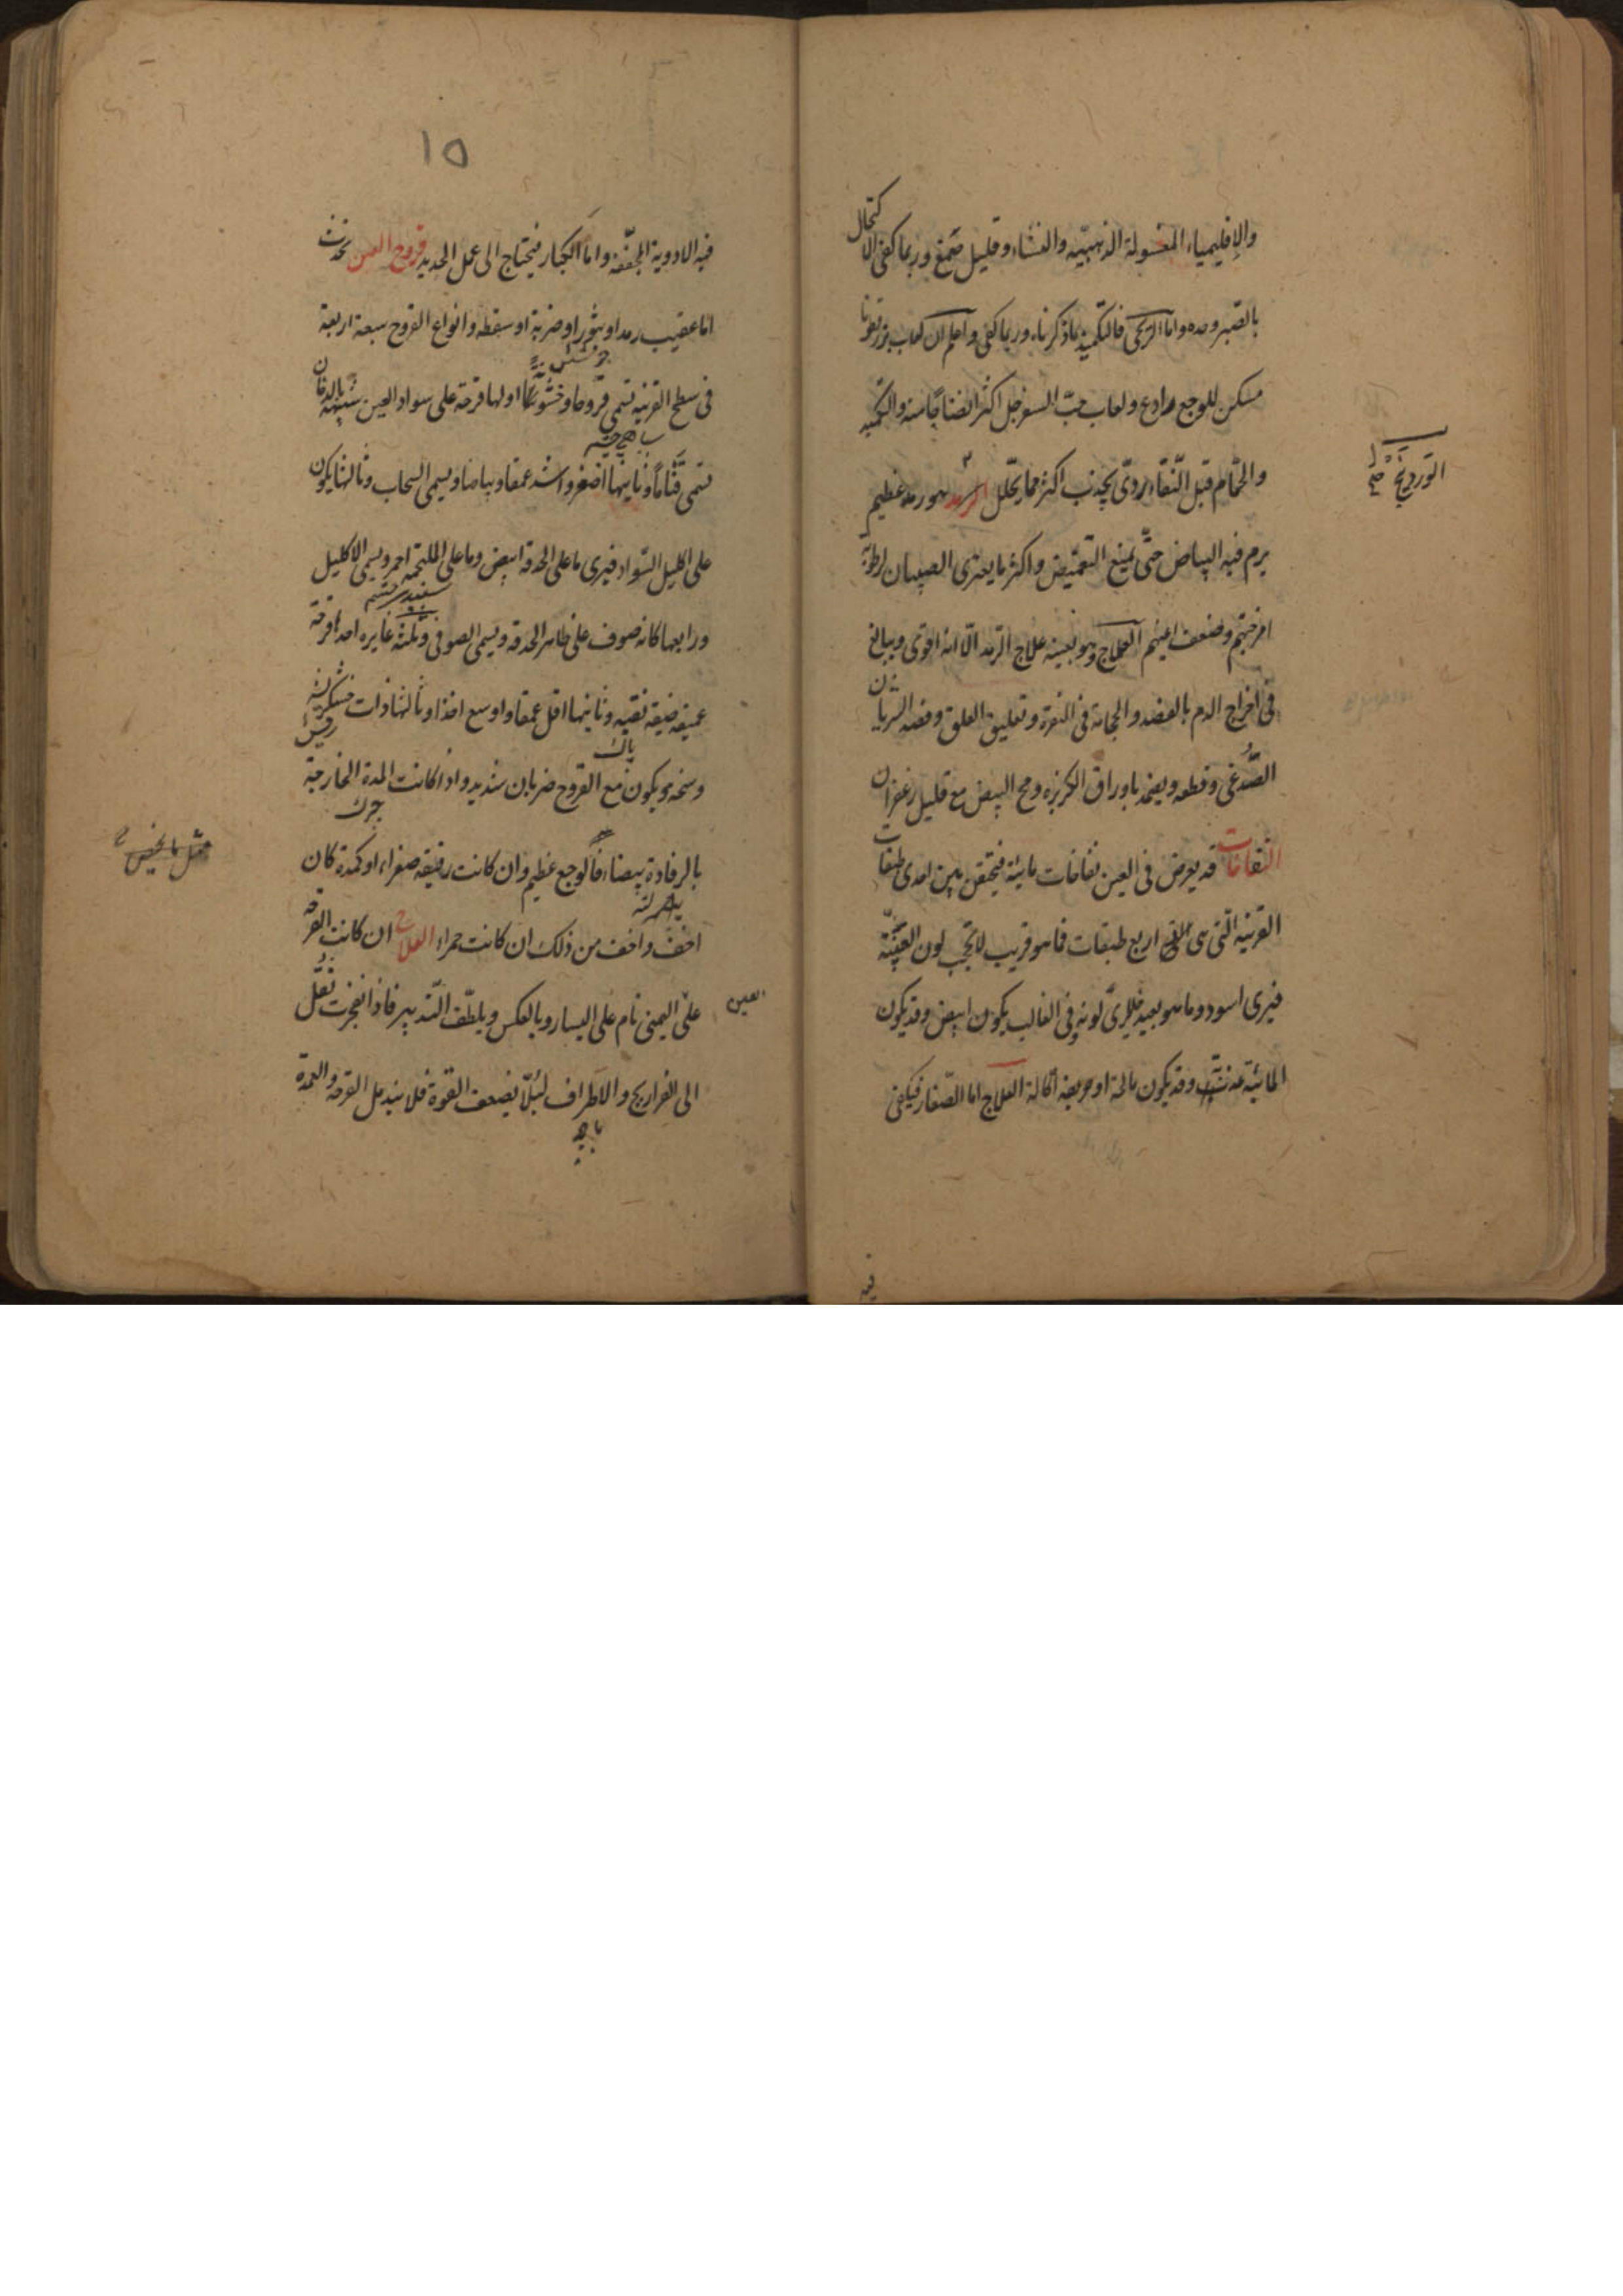 والإقليمياء المغسولة الذهبيّه والنشاء وقليل صمغ وربما كفى الاكتحال
بالصبر وحده واما الريحى فالتكميد بما ذكرناه وربما كفى واعلم ان لعاب بزرقطونا
مسكن للوجع رادع ولعاب حبّ السفرجل اكثر انضاجا منه والتكميد
والحمّام قبل النّقاء ردىّ يجذب اكثر مما يحلل هو رمد عظيم
الوردينج
يرم فيه البياض حتّى يمنع التغميض واكثر ما يعترى الصبيان لرطوبة
امزجتهم وضعف اعينهم العلاج وهو بعينه علاج الرمد الّا انه اقوى ويبالغ
فى اخراج الدم بالفصد والحجامة فى النقرة وتعليق العلق وفصد الشريان
الصّدغى وقطعه ويضمد باوراق الكزبره ومح البيض مع قليل زعفران
النفاخات قد يعرض فى العين نفاخات مائية فيحتقن بين احدى طبقات
القرنيه الّتى هى اربع طبقات فما هو قريب لا يحجب لون العنبيّة
فيرى اسود وما هو بعيد فلا يرى لونه وفى الغالب يكون ابيض وقد يكون
المائية عذبة وقد يكون مالحة او حريفة اكالة العلاج اما الصّغار فيكفى
فيه
١٥
فيه الادوية المجفّفه واما الكبار فيحتاج الى عمل الحديد قروح العين تحدث
اما عقيب رمد او بثور او ضربة او سقطه وانواع القروح سبعة اربعة
فى سطح القرنيه تسمى قروحا وخشونة اولها قرحة على سواد العين شبيهة بالدخان
تسمى قتاما وثانيها اصغر واشد عمقا وبياضا ويسمى السحاب وثالثها يكون
على اكليل السّواد فيرى ما على الحدقة ابيض وما على الملتحمه احمر ويسمى الاكليلى
ورابعها كانه صوف على ظاهر الحدقه ويسمى الصوفى وثلثة غايره احدها قرحة
عميقه ضيقه نقيه وثانيها اقل عمقا واوسع اخذا وثالثها ذات خشكريشه
پاك
وسخه ويكون مع القروح ضربان شديد واذا كانت المدة الخارجة
چرك
بالرفادة بيضاء فالوجع عظيم وان كانت رقيقه صفراء او كمدة كان
اخفّ واخف من ذلك ان كانت حمراء العلاج ان كانت القرحه
العين
على اليمنى نام على اليسار وبالعكس ويلطّف التّدبير فاذا انفجرت نقل
الى الفراريج والاطراف لئلّا يضعف القوة فلا يندمل القرحه والعمدة
پاچه